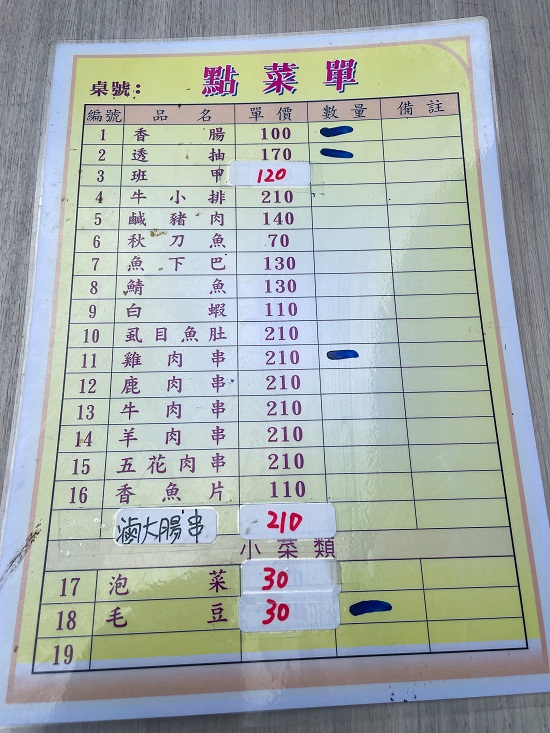 點菜單
桌號:
編號 品名 單價 數量 備註
1 香腸 100
2 透抽 170
3 班甲 120
4 牛小排 210
5 鹹豬肉 140
6 秋刀魚 70
7 魚下巴 130
8 鯖魚 130
9 白蝦 110
10 虱目魚肚 210
11 雞肉串 210
12 鹿肉串 210
13 牛肉串 210
14 羊肉串 210
15 五花肉串 210
16 香魚片 110
滷大腸串 210
小菜類
17 泡菜 30
18 毛豆 30
19